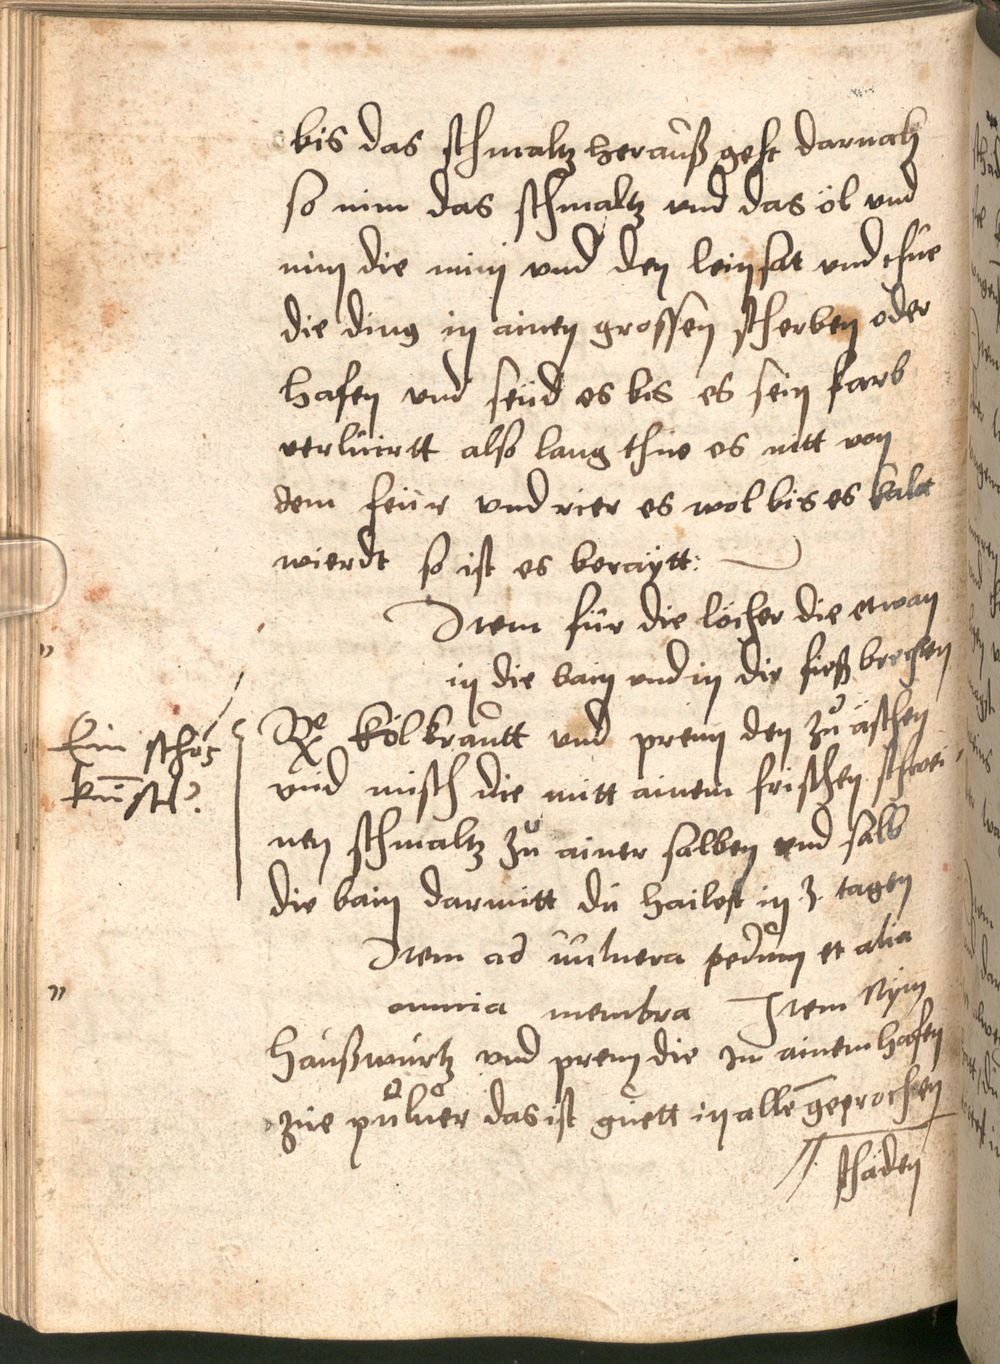 bis das schmaltz herauß geht darnach
so nim das schmaltz und das öl und
nim die mini und den leinsat und thue
die ding in ainen grossen scherben oder
hafen und seüd es bis es sein farb
verlüirtt also lang thue es nitt von
dem feür und rier es wol bis es kalt
wierdt so ist es beraÿtt:
Item für die löcher die etwan
in die bain und in die fieß brechen
Ein schöˢ
kunstl
Rͤ kölkrautt und prenn den zů äschen
und misch die mitt ainem frischen schwei
nen schmaltz zů ainer salben und salb
die bain darmitt du hailest in 3. tagen
Item ad uulnera pedum et alia
omnia membra Item Nÿm
haußwurtz und prenn die in ainem hafen
zue puluer das ist guett in alle geprochen
schäden